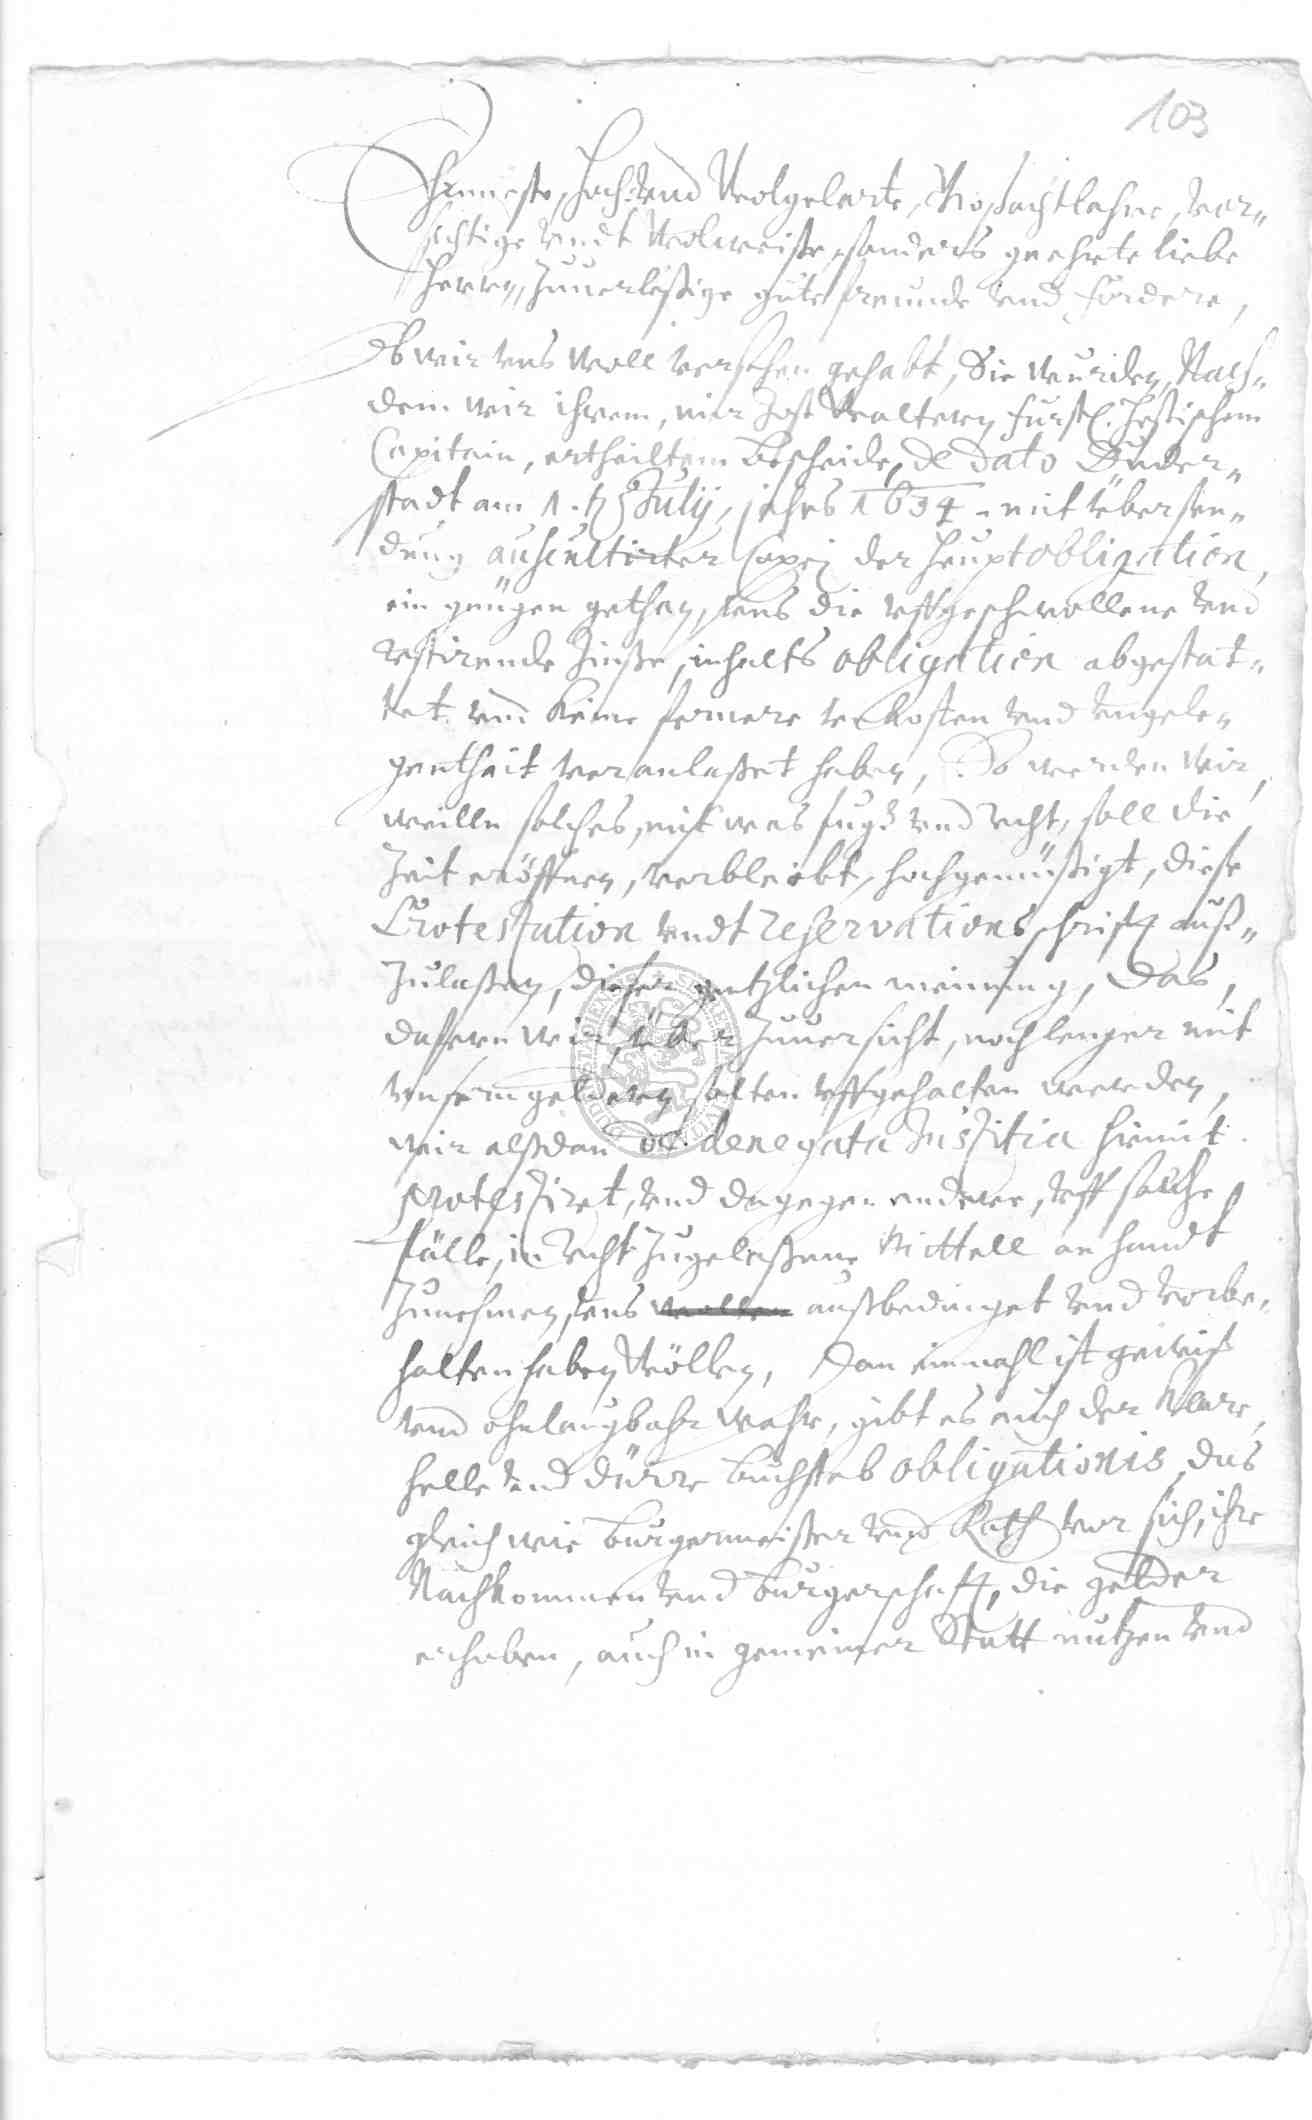 103
Ehrnueste, Hoch: vnd Wolgelarte, Großachtbahre, Vor„
sichtige vndt Wolweise, sonders geehrte liebe
Herrn, Zuuerleßige gute freunde vnd fördere,
Ob wir vns woll versehen gehabt, Sie wurden, Nach„
dem wir ihrem, mir Jost Waltern fürstl. Heßischem
Capitain, ertheiltem Bescheide, de dato Duder„
stadt am 1. July, jahrs 1634 mit übersen„
dung auscultirter Copej der Heuptobligation,
ein genügen gethan, vns die vffgeschwollene vnd
restirende Zinße, inhalts obligation abgestat„
tet vnd keine fernere vnkosten vnd vngele„
gentheit veranlaßet haben, So werden wir,
weilln solches, mit was fugs vnd recht, soll die
Zeit eröffnen, verbleibt, hochgemüßigt, diese
Protestation vndt reservations schrifft auß„
zulaßen, dieser gentzlichen meinung, Das,
dafern wir, über Zuuersicht, noch lenger mit
vnsern geldern solten vffgehalten werden,
wir alßdan de denegata Justitia hiemit
protestiret, vnd dagegen andere, vff solche
fälle, in Recht Zugelaßene Mittell an handt
Zunehmen, vns wollen außbedinget vnd vorbe„
halten haben wöllen, Dan einmahl ist gewiß
vnd ohnlaugbahr wahr, gibt es auch der klare,
helle vnd dürre Buchstab obligationis, das
gleich wie Burgermeister vnd Rath vor sich, ihre
Nachkommen vnd burgerschafft, die gelder
erhaben, auch in gemeiner Statt nutzen vnd